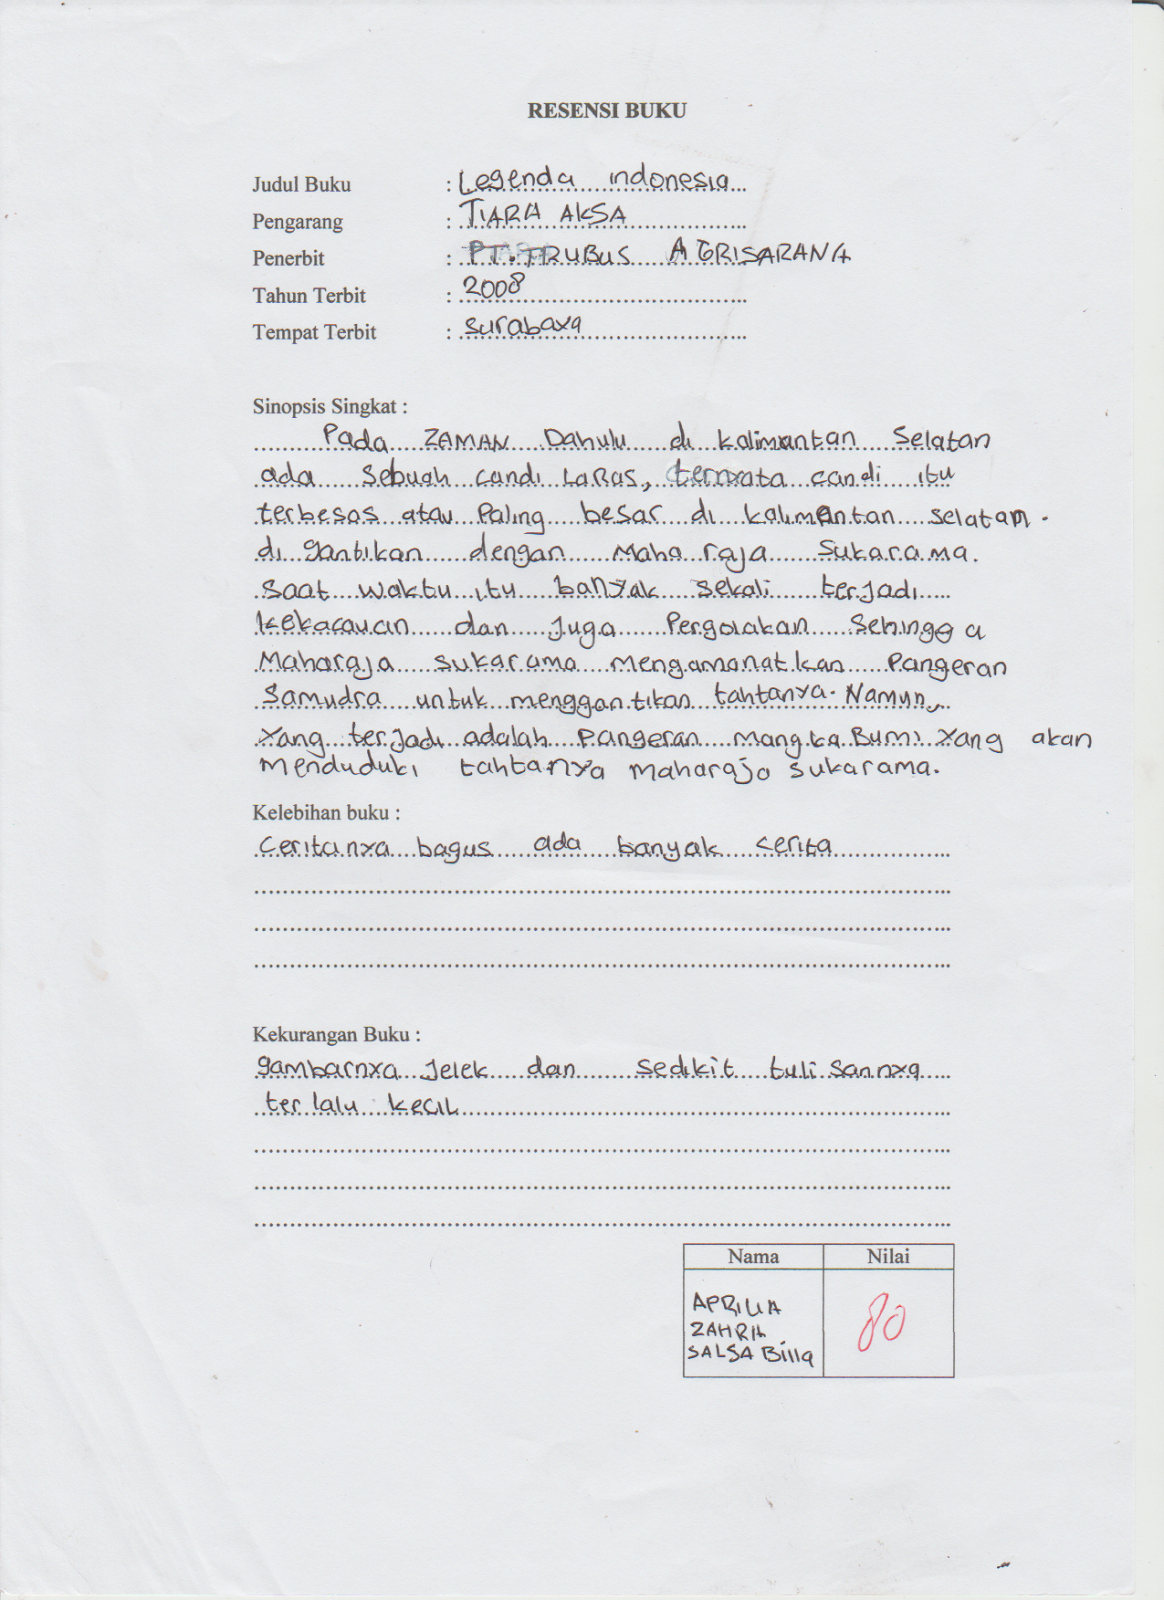 RESENSI BUKU
Judul Buku : Legenda indonesia
Pengarang : TIARA AKSA
Penerbit : PT. TRUBUS AGRISARANA
Tahun Terbit : 2008
Tempat Terbit : Surabaya
Sinopsis Singkat :
Pada ZAMAN Dahulu di kalimantan Selatan
ada Sebuah candi LaRas, ternyata candi itu
terbesas atau Paling besar di kalimantan selatan.
di gantikan dengan Maha raja Sukarama.
Saat waktu itu banyak sekali terjadi
kekacauan dan Juga Pergolakan Sehingga
Maharaja sukarama mengamanatkan Pangeran
Samudra untuk menggantikan tahtanya. Namun,
Yang terjadi adalah Pangeran mangka Bumi Yang akan
menduduki tahtanya maharaja sukarama.
Kelebihan buku :
Ceritanya bagus ada banyak cerita
Kekurangan Buku :
gambarnya Jelek dan sedikit tulisannya
terlalu kecil
Nama Nilai
APRILIA
ZAHRA
SALSA Billa
80